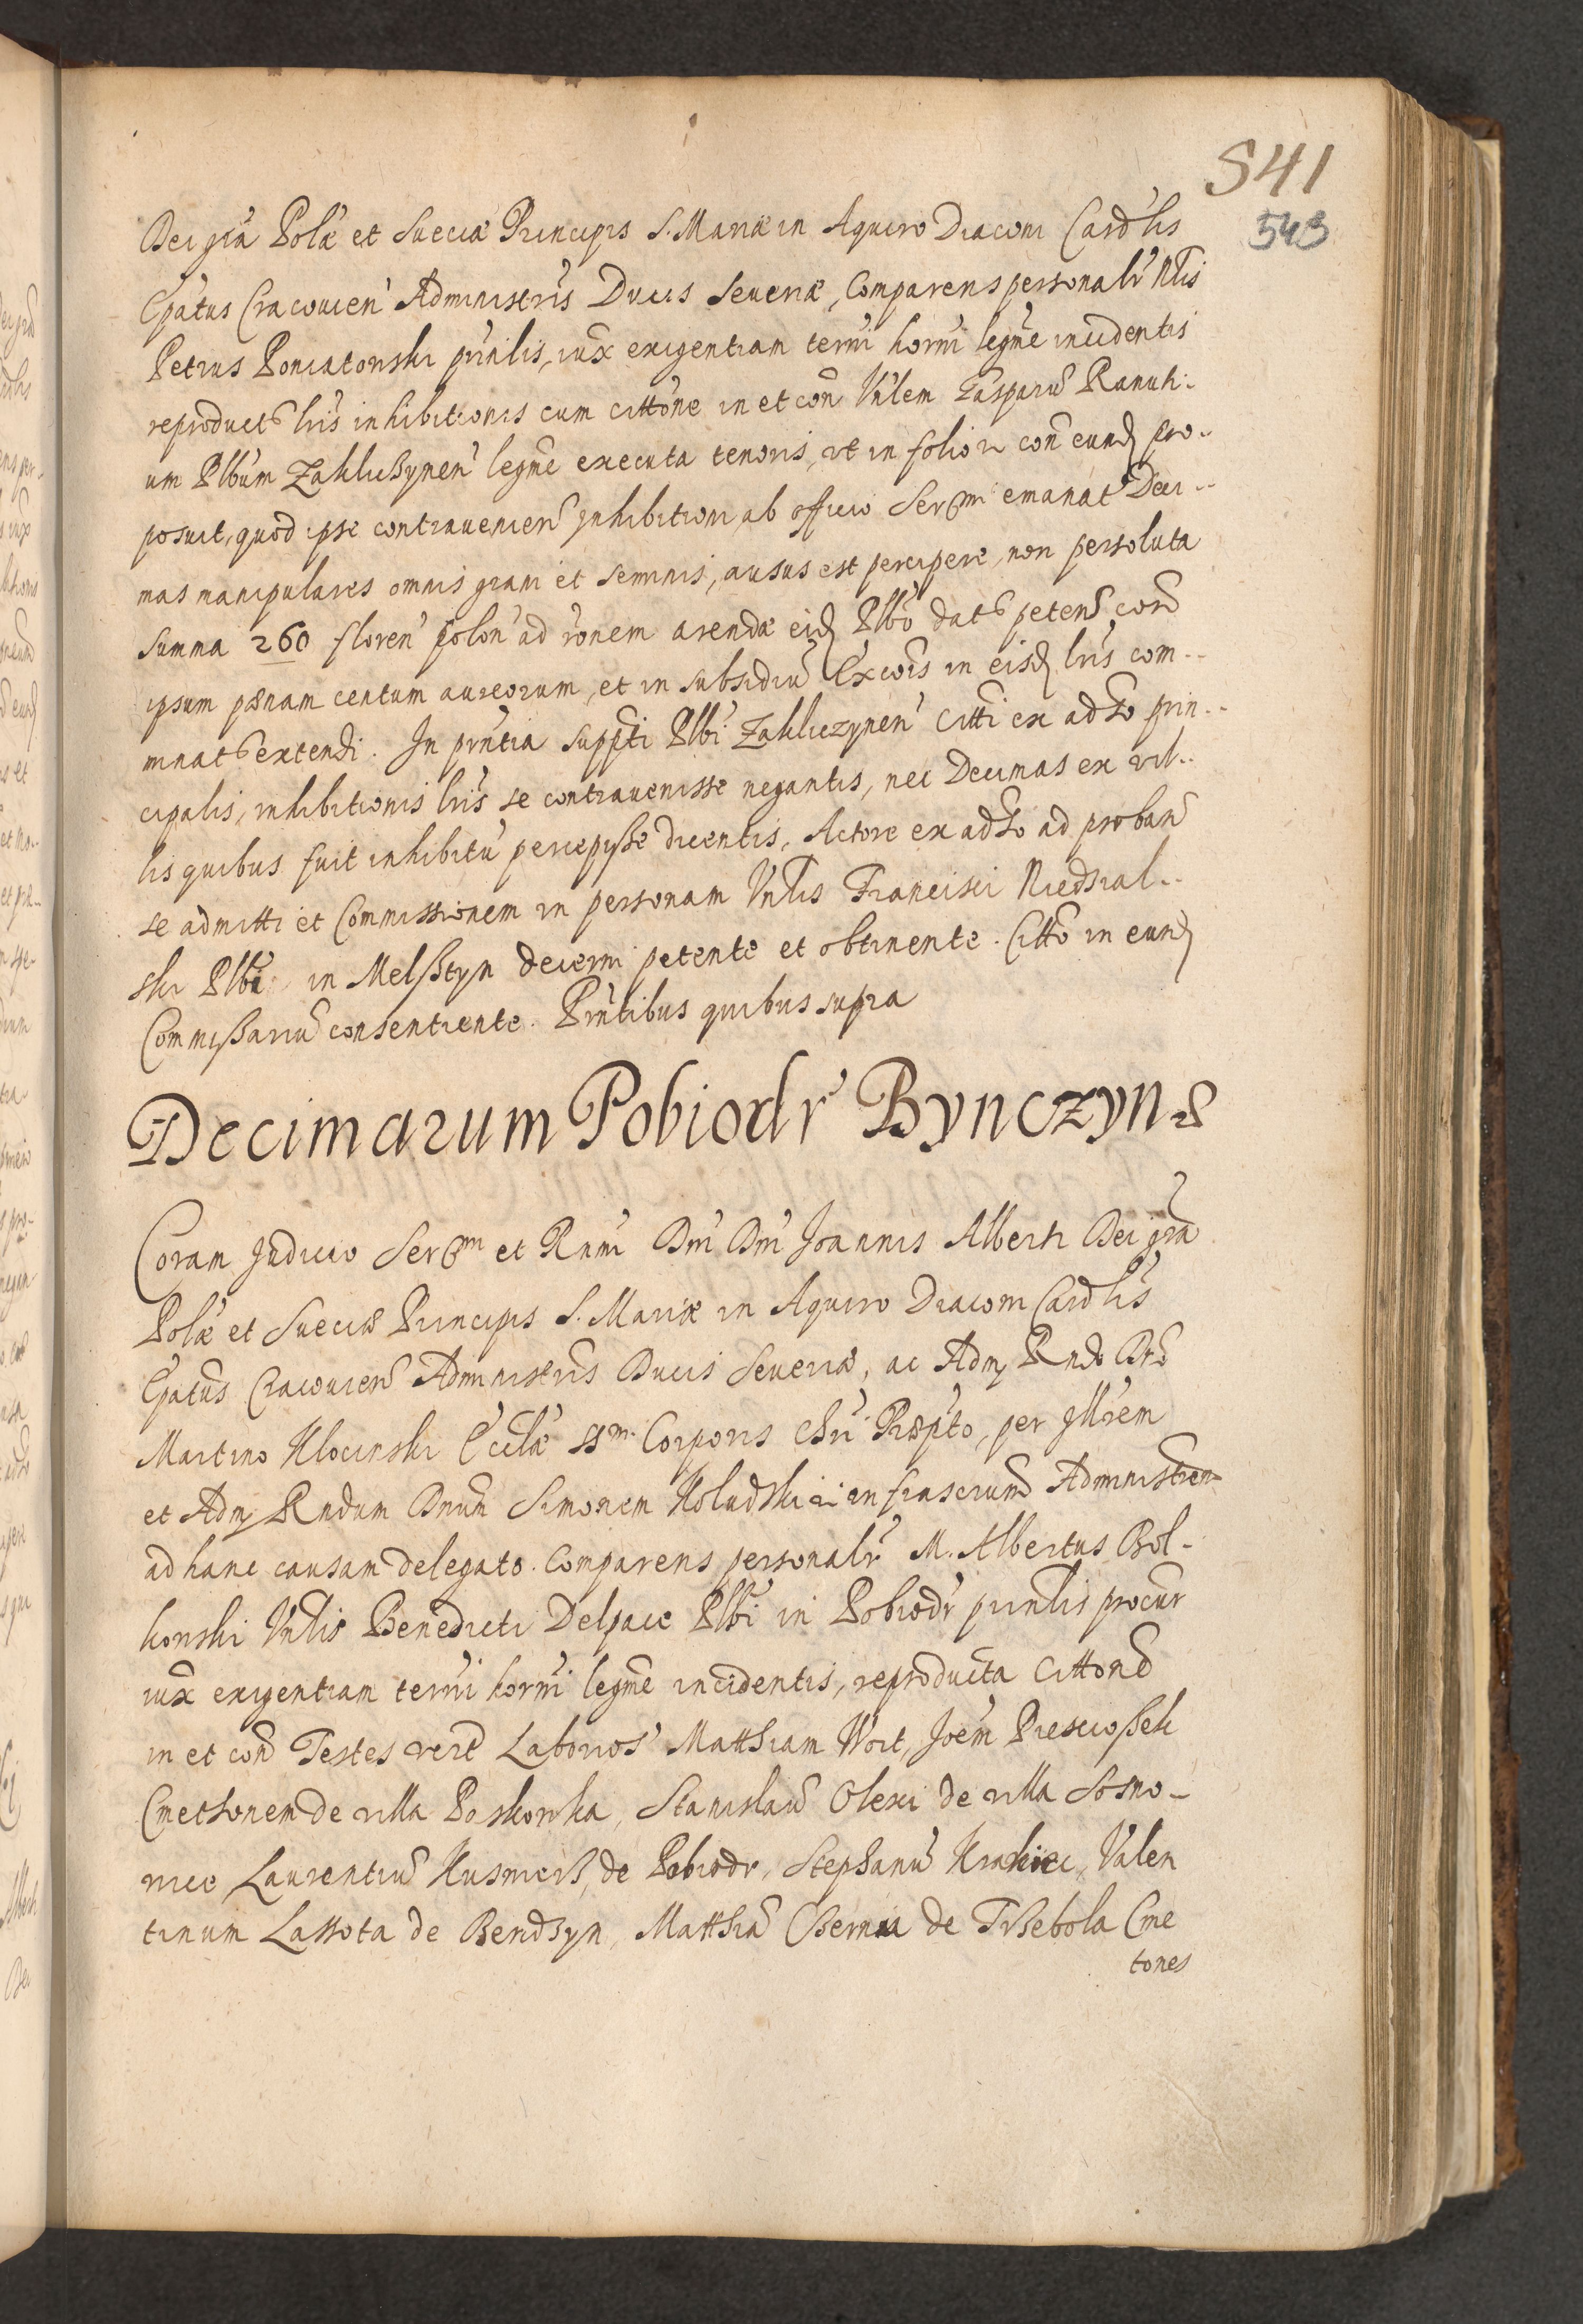 541
543
Dei grã Polæ et Sueciæ Principis S. Mariæ in Aquiro Diaconi Cardlis
Epatus Cracovien Administris Ducis Severiæ, Comparens personalr Nlis
Petrus Poniatowski prinlis, iux exigentiam termi horni legme incidentis
reproductis lris inhibitionis cum cittone in et con Vnlem Gasparu Ranuti-
um Plbum Zakliczynen legme executa tenoris, vt in folio con eund pro-
posuit, quod ipse contraveniens Inhibitioni ab officio Sermi emanat Deci-
mas manipulares omnis grani et seminis, ausus est percipere, non persoluta
summa 260 floren polon ad ronem arendæ eid Plbo dat petens cora
ipsum pænam centum aureorum, et in subsidiu Excois in eisd lris com-
minat extendi. In pntia suppti Plbi Zakliczynen citti ex adso prin-
cipalis, inhibitionis lris se contravenisse negantis, nec Decimas ex vil-
lis quibus fuit inhibitu percepisse dicentis, Actore ex adso ad proban
se admitti et Commissionem in personam Vnlis Francisci Niedzial-
ski Plbi in Melsztyn decerni petente et obtinente. Citto in eund
Commissariu consentiente. Prntibus quibus supra
Decimarum Pobiodr Bynczyn
Coram Judicio Sermi et Rnmi Dni Dni Joannis Alberti Dei gra
Polæ et Sueciæ Principis S. Mariæ in Aquiro Diaconi Cardlis
Epatus Cracovien Administris Ducis Severiæ, ac Adm Rndo Dno
Martino Klocinski Ecclæ ssm Corporis Chri Præpto, per Illrem
et Adm Rndum Dnum Simonem Koludzki infrascrum Administren
ad hanc causam delegato. Comparens personalr M. Albertus Bol-
konski Vnlis Benedicti Delpace Plbi in Pobiodr prinlis procur
iux exigentiam termi horni legme incidentis, reproducta Cittone
in et con Testes vere Laborios Matthiam Woit, Joem Piescioszek
Cmethonem de villa Poskowka, Stanislau Olexi de villa Sosno-
wiec Laurentiu Kusmierz, de Pobiodr, Stephanu Valen
tinum Lassota de Bendzyn, Matthia de Trzebola Cme
tones